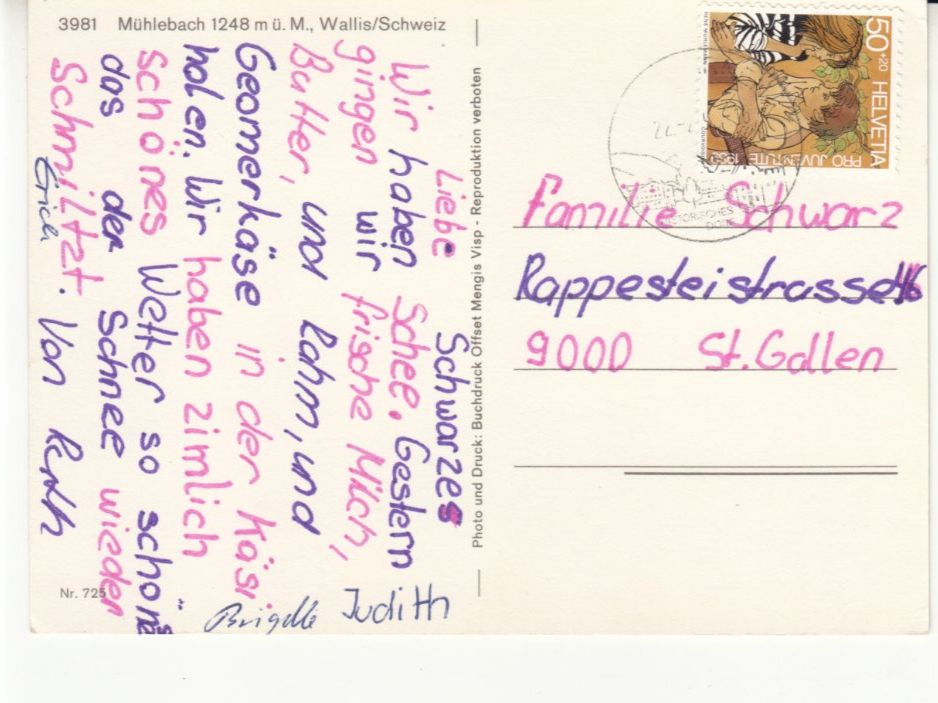 3981 Mühlebach 1248 m ü. M., Wallis/Schweiz
Liebe Schwarzes
Wir haben Schee. Gestern
gingen wir frische Milch,
Butter, und Rahm, und
Geomerkäse in der Käsi
holen. Wir haben zimlich
schönes Wetter so schönes
das der Schnee wieder
Schmiltzt. Von Ruth
Erich
Brigitte Judith
Nr. 725
Photo und Druck: Buchdruck Offset Mengis Visp - Reproduktion verboten
50+20 HELVETIA
PRO JUVENTUTE
Familie Schwarz
Rappesteistrasse
9000 St. Gallen